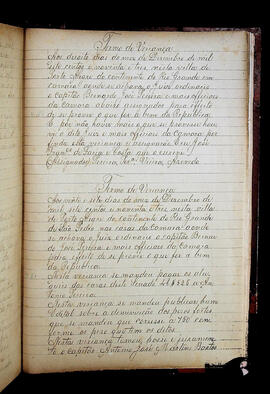 Termo de Veriança
Aos quatro dias do mez de Dezembro de mil
sete centos e noventa e tres, nesta villa de
Porto Alegre do continente do Rio Grande em
camara, aonde se achava o Juiz ordinario
o capitão Bernardo José Pereira e mais officiaes
da Camara abaixo assignados, para effeito
de se prover o que for a bem da Republica.
E por não haver mais o que se provesse hou-
ve o dito Juiz e mais officiaes da Camara por
finda esta veriança e assignarão. Eu, José
de Faria e Costa que a escrevi.
Assignados Pereira, Vieira, Azevedo
Termo de Veriança
Aos vinte e sete dias do mez de Dezembro de
mil sete centos e noventa e tres, nesta villa
de Porto Alegre do continente do Rio Grande
de São Pedro, nas casas da Camara aonde
se achava o Juiz ordinario o capitão Bernar-
do José Pereira e mais officiaes da Camara,
para effeito de se prover o que for a bem
da Republica.
Nesta veriança se mandou pagar os alu-
gueis das casas deste Senado
tonio Pereira.
Nesta veriança se mandou publicar hum
Edital sobre a diminuição dos pezos fortes,
que se mandou que corresse a 750 con-
forme os pezo que tem os ditos.
Nesta veriança tomou posse e juramen-
to o capitão Antonio José Martins Bastos